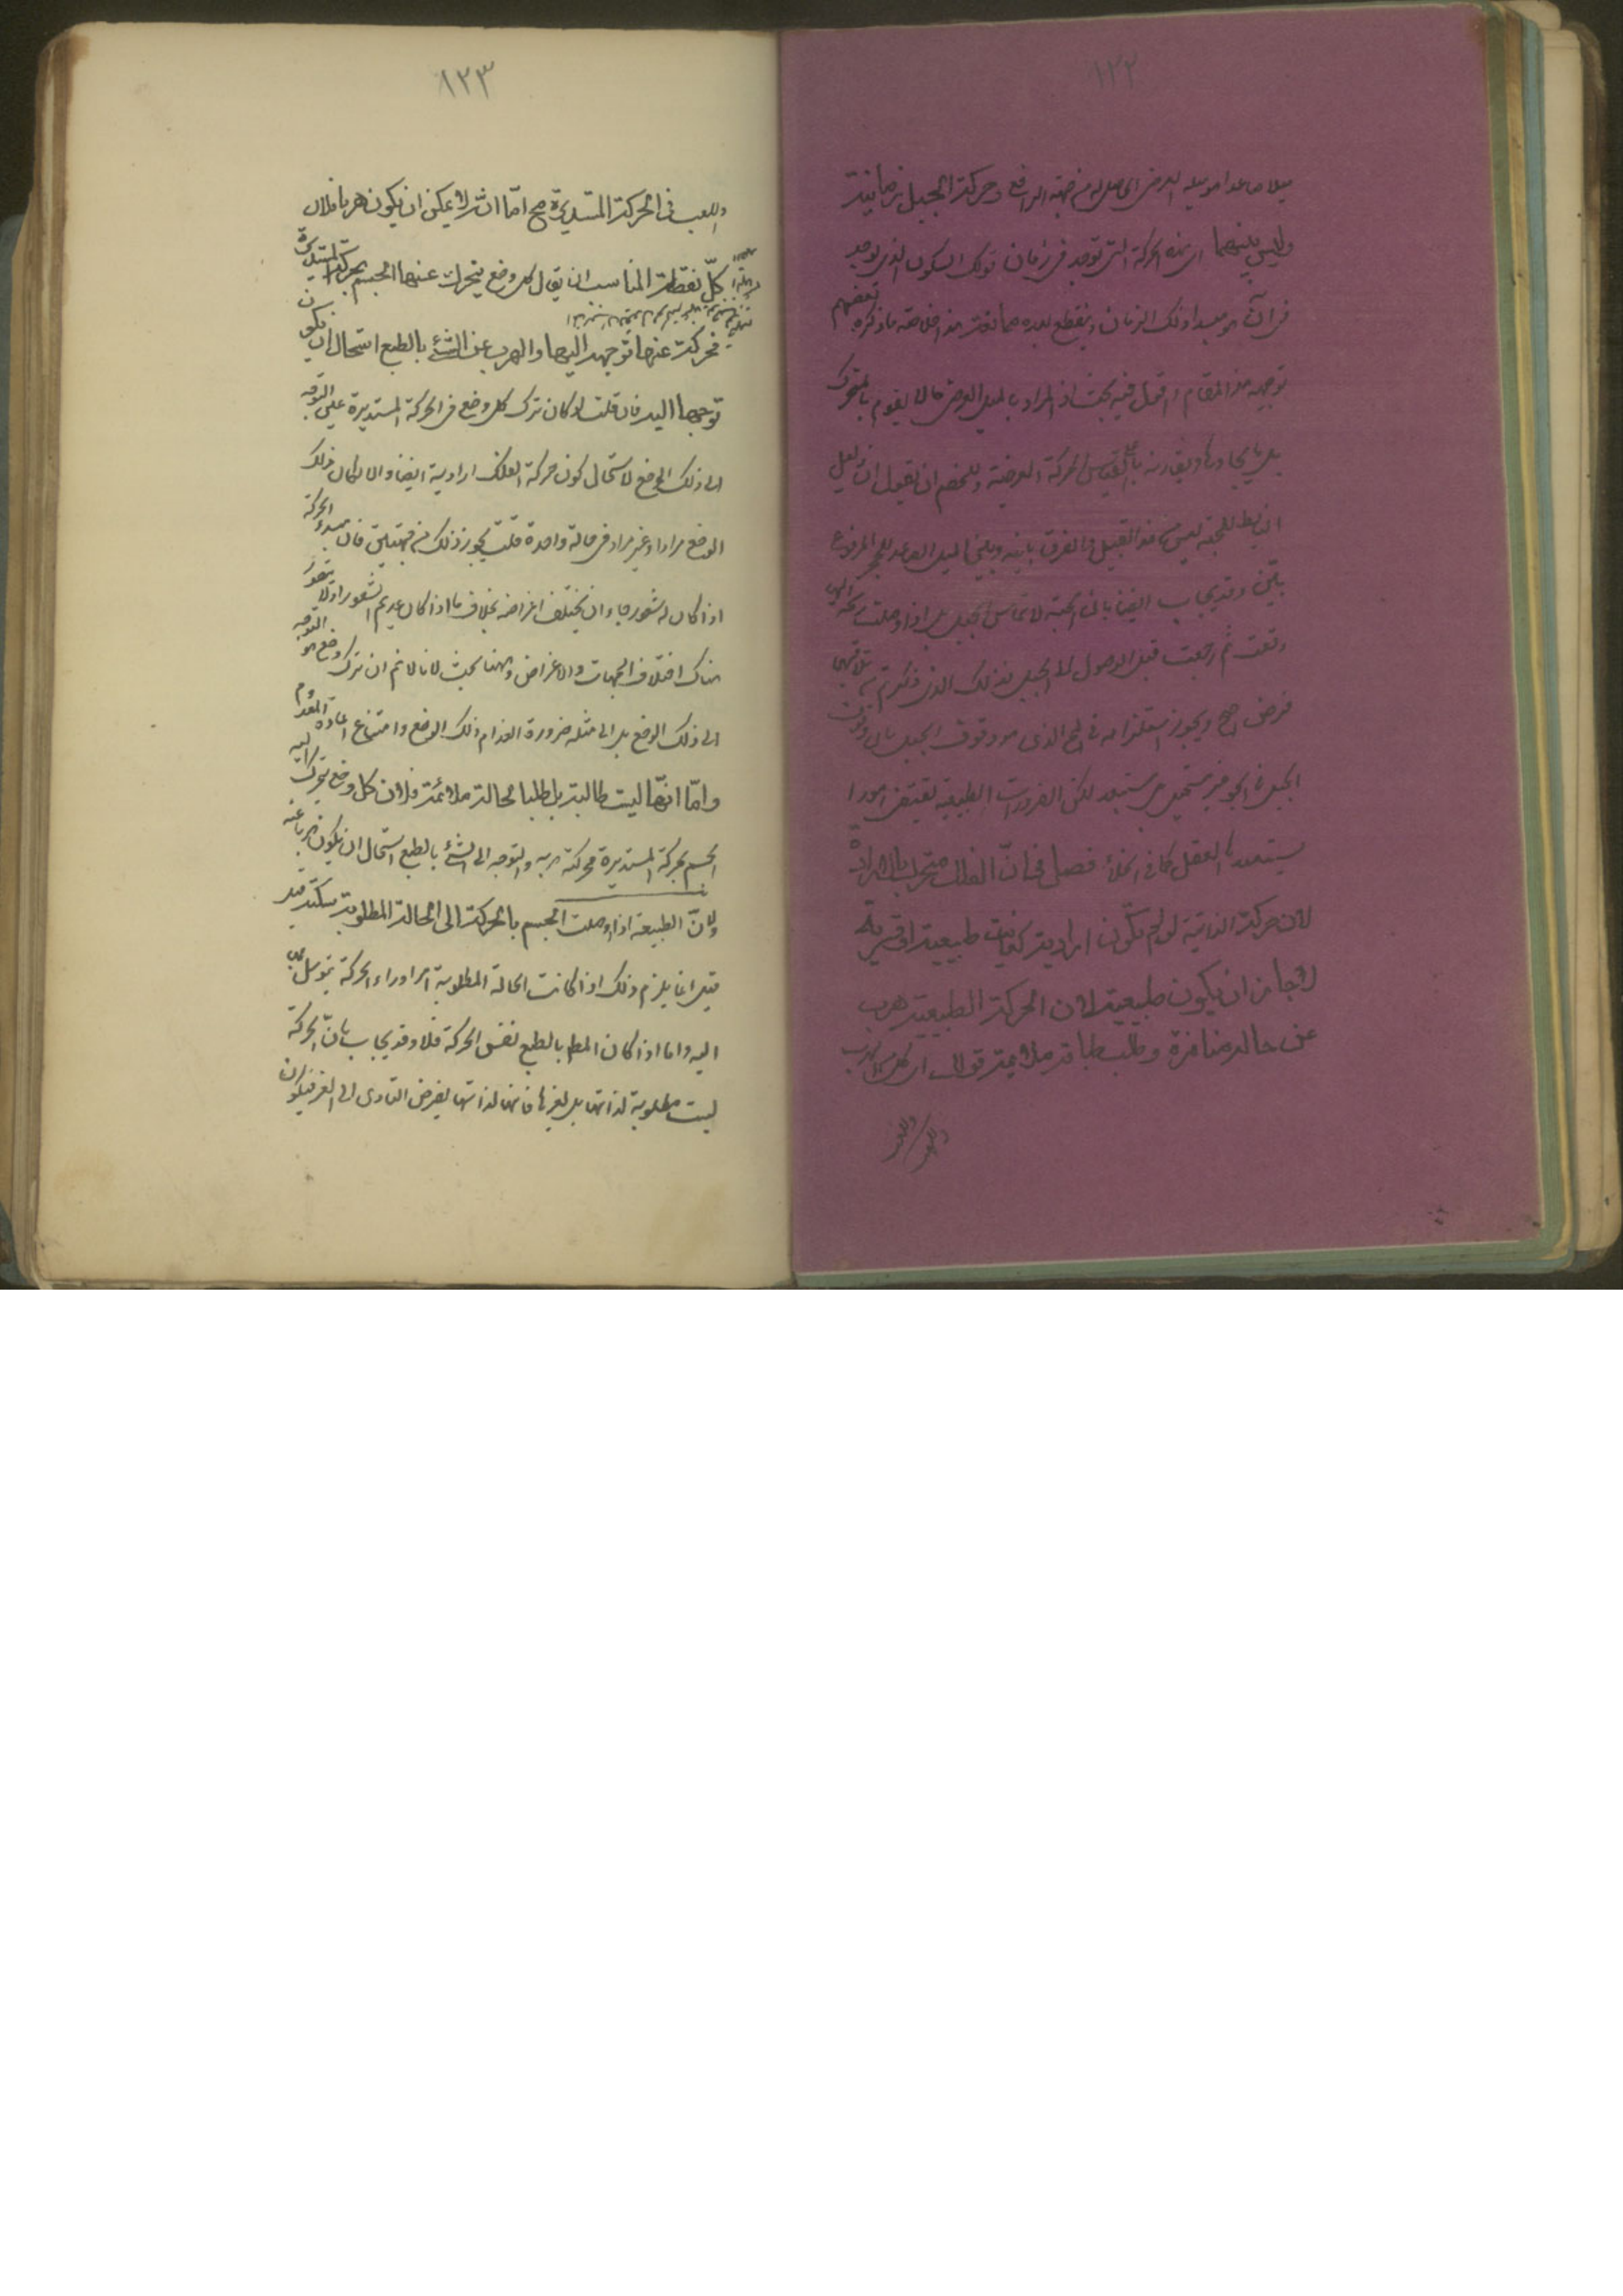 ١٢٢
ميلا صاعدا هو ميله العرضى الحاصل له من جهة الدافع وحركة الجبل زمانية
وليس بينهما اى هذه الحركة التى توجد فى زمان وذلك السكون الذى يوجد
فى آن هو مبدا ذلك الزمان وينقطع بعده هذا خلاصة ما ذكره بعضهم
توجيه هذا المقام اقول فيه بحث اذ المراد بالميل العرضى ما لا يقوم بالمتحرك
بل بما يجاوره ويقارنه على قياس الحركة العرضية وللخصم ان يقول ان الميل
الهابط للحبة ليس من هذا القبيل والفرق بينه وبين الميل الصاعد للحجر المرفوع
بيّن وقد يجاب ايضا بان الحبة لا تماس الجبل بل اذا وصلت ريحه اليها
وقفت ثم رجعت قبل الوصول الى الجبل فذلك الذى ذكرتم تلاقيهما
فرض محال ويجوز استلزامه المح الذى هو وقوف الجبل بان وقوف
الجبل فى الجو غير مستحيل بل مستبعد لكن الضرورات الطبيعية تقتضى امورا
يستبعدها العقل كما فى الخلاء فصل فى انّ الفلك متحرك بالارادة
لان حركته الذاتية لو لم تكن ارادية لكانت طبيعية او قسرية
لا جائز ان يكون طبيعية لان الحركة الطبيعية هرب
عن حالة منافرة وطلب حالة ملائمة فوالا ان كل من الهرب
والطلب
١٢٣
والطلب فى الحركة المستديرة مح امّا انه لا يمكن ان يكون هربا فلان
كلّ نقطة المناسب ان يقال كل وضع يتحرك عنها الجسم بحركته المستديرة
فحركته عنها توجهه اليها والهرب عن الشئ بالطبع استحال ان يكون
توجها اليه فان قلت لو كان ترك كل وضع فى الحركة المستديرة عين التوجه
الى ذلك الوضع لاستحال كون حركة الفلك ارادية ايضا والا لكان ذلك
الوضع مرادا وغير مراد فى حالة واحدة قلت يجوز ذلك من جهتين فان مبدء الحركة
اذا كان له شعور جاز ان يختلف اغراضه بخلاف ما اذا كان عديم الشعور اذ لا يتصور
هناك اختلاف الجهات والاغراض وههنا بحث لانا لا نم ان ترك وضع هو التوجه
الى ذلك الوضع بل الى مثله ضرورة انعدام ذلك الوضع وامتناع اعادة المعدوم
وامّا انّها ليست طالبة بل طلبا لحالة ملائمة فلان كل وضع يتحرك اليه
الجسم بحركته المستديرة فحركته هربه والتوجه الى الشئ بالطبع استحال ان يكون هربا عنه
ولانّ الطبيعة اذا اوصلت الجسم بالحركة الى الحالة المطلوبة سكنته قيل
قيل انما يلزم ذلك اذا كانت الحالة المطلوبة امرا وراء الحركة يتوسل بها
اليه واما اذا كان المط بالطبع نفس الحركة فلا وقد يجاب بانّ الحركة
ليست مطلوبة لذاتها بل لغيرها فانها لذاتها يقتضى التادى الى الغير فيكون